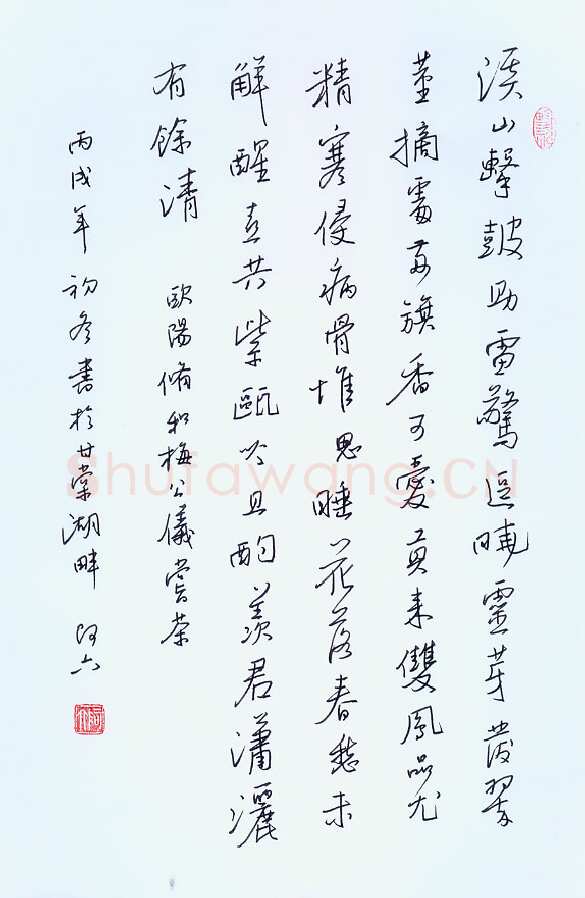 溪山擊鼓助雷驚逗曉靈芽發翠
莖摘處兩旗香可愛貢來雙鳳品尤
精寒侵病骨惟思睡花落春愁未
解醒喜共紫甌吟且酌羨君瀟灑
有餘清 歐陽脩和梅公儀嘗茶
丙戌年初冬書於甘棠湖畔 阿六
Shufawang.CN